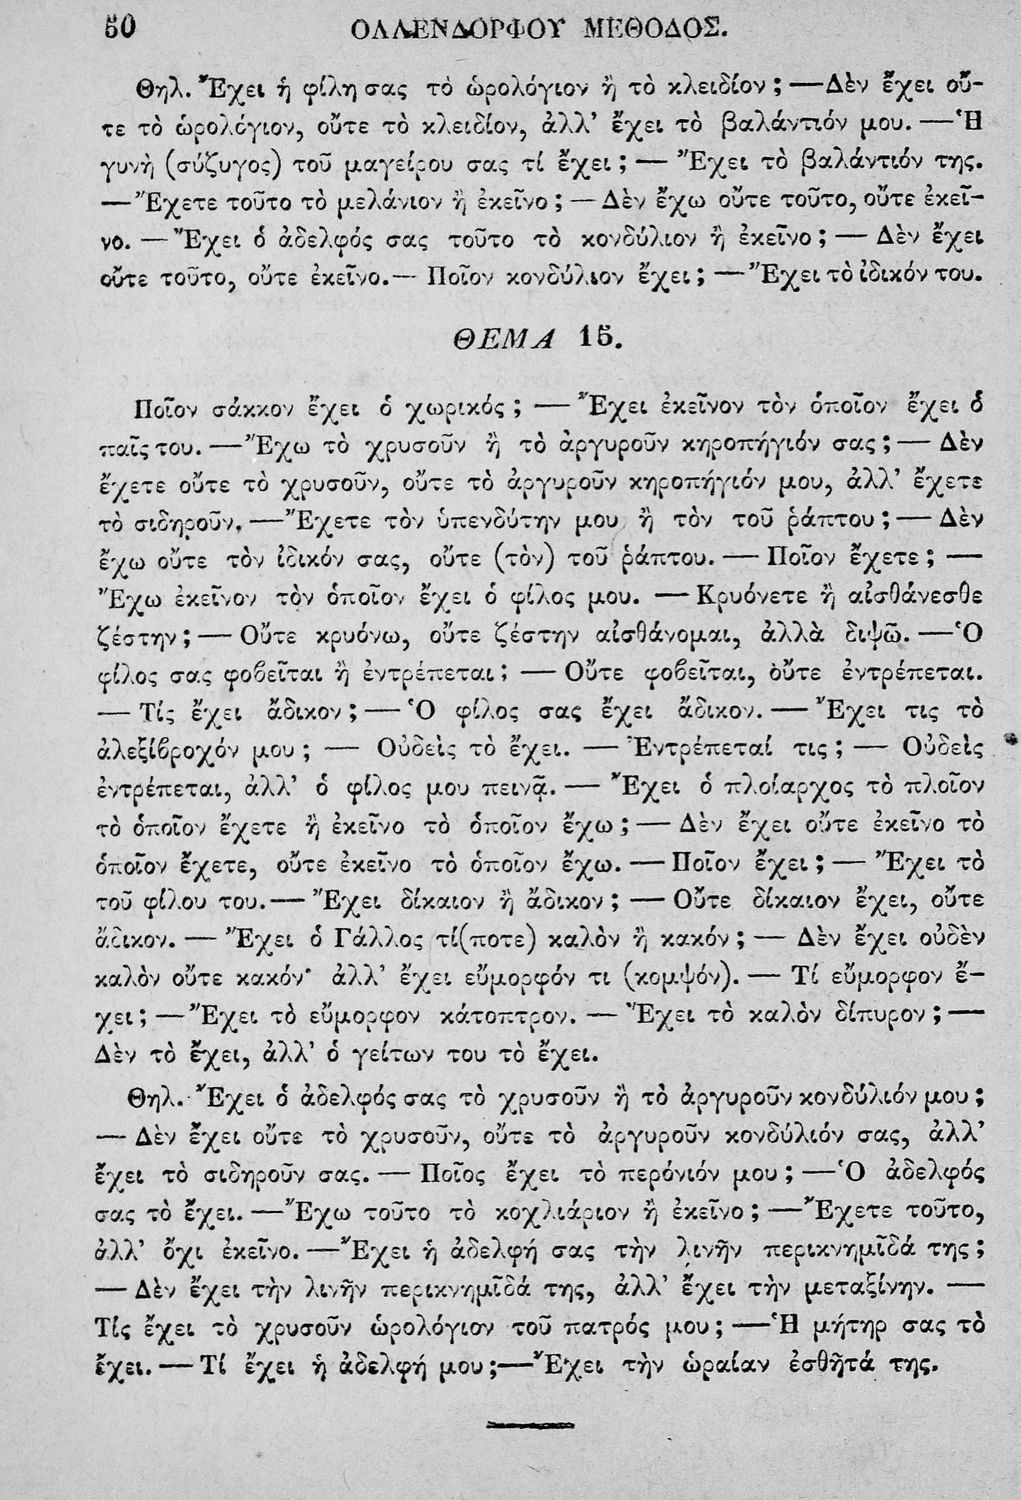 50 ΟΛΛΕΝΔΟΡΦΟΥ ΜΕΘΟΔΟΣ.
Θηλ. Ἔχει ἡ φίλη σας τὸ ὡρολόγιον ἢ τὸ κλειδίον; — Δὲν ἔχει οὔ-
τε τὸ ὡρολόγιον, οὔτε τὸ κλειδίον, ἀλλ’ ἔχει τὸ βαλάντιόν μου. — Ἡ
γυνὴ (σύζυγος) τοῦ μαγείρου σας τί ἔχει; — Ἔχει τὸ βαλάντιόν της.
— Ἔχετε τοῦτο τὸ μελάνιον ἢ ἐκεῖνο; — Δὲν ἔχω οὔτε τοῦτο, οὔτε ἐκεῖ-
νο. — Ἔχει ὁ ἀδελφός σας τοῦτο τὸ κονδύλιον ἢ ἐκεῖνο; — Δὲν ἔχει
οὔτε τοῦτο, οὔτε ἐκεῖνο. — Ποῖον κονδύλιον ἔχει; — Ἔχει τὸ ἰδικόν του.
ΘΕΜΑ 15.
Ποῖον σάκκον ἔχει ὁ χωρικός; — Ἔχει ἐκεῖνον τὸν ὁποῖον ἔχει ὁ
παῖς του. — Ἔχω τὸ χρυσοῦν ἢ τὸ ἀργυροῦν κηροπήγιόν σας; — Δὲν
ἔχετε οὔτε τὸ χρυσοῦν, οὔτε τὸ ἀργυροῦν κηροπήγιόν μου, ἀλλ’ ἔχετε
τὸ σιδηροῦν. — Ἔχετε τὸν ὑπενδύτην μου ἢ τὸν τοῦ ῥάπτου; — Δὲν
ἔχω οὔτε τὸν ἰδικόν σας, οὔτε (τὸν) τοῦ ῥάπτου. — Ποῖον ἔχετε; —
Ἔχω ἐκεῖνον τὸν ὁποῖον ἔχει ὁ φίλος μου. — Κρυόνετε ἢ αἰσθάνεσθε
ζέστην; — Οὔτε κρυόνω, οὔτε ζέστην αἰσθάνομαι, ἀλλὰ διψῶ. — Ὁ
φίλος σας φοβεῖται ἢ ἐντρέπεται; — Οὔτε φοβεῖται, οὔτε ἐντρέπεται.
— Τίς ἔχει ἄδικον; — Ὁ φίλος σας ἔχει ἄδικον. — Ἔχει τις τὸ
ἀλεξίβροχόν μου; — Οὐδεὶς τὸ ἔχει. — Ἐντρέπεταί τις; — Οὐδεὶς
ἐντρέπεται, ἀλλ’ ὁ φίλος μου πεινᾷ. — Ἔχει ὁ πλοίαρχος τὸ πλοῖον
τὸ ὁποῖον ἔχετε ἢ ἐκεῖνο τὸ ὁποῖον ἔχω; — Δὲν ἔχει οὔτε ἐκεῖνο τὸ
ὁποῖον ἔχετε, οὔτε ἐκεῖνο τὸ ὁποῖον ἔχω. — Ποῖον ἔχει; — Ἔχει τὸ
τοῦ φίλου του. — Ἔχει δίκαιον ἢ ἄδικον; — Οὔτε δίκαιον ἔχει, οὔτε
ἄδικον. — Ἔχει ὁ Γάλλος τί(ποτε) καλὸν ἢ κακόν; — Δὲν ἔχει οὐδὲν
καλὸν οὔτε κακόν· ἀλλ’ ἔχει εὔμορφόν τι (κομψόν). — Τί εὔμορφον ἔ-
χει; — Ἔχει τὸ εὔμορφον κάτοπτρον. — Ἔχει τὸ καλὸν δίπυρον; —
Δὲν τὸ ἔχει, ἀλλ’ ὁ γείτων του τὸ ἔχει.
Θηλ. Ἔχει ὁ ἀδελφός σας τὸ χρυσοῦν ἢ τὸ ἀργυροῦν κονδύλιόν μου;
— Δὲν ἔχει οὔτε τὸ χρυσοῦν, οὔτε τὸ ἀργυροῦν κονδύλιόν σας, ἀλλ’
ἔχει τὸ σιδηροῦν σας. — Ποῖος ἔχει τὸ περόνιόν μου; — Ὁ ἀδελφός
σας τὸ ἔχει. — Ἔχω τοῦτο τὸ κοχλιάριον ἢ ἐκεῖνο; — Ἔχετε τοῦτο,
ἀλλ’ ὄχι ἐκεῖνο. — Ἔχει ἡ ἀδελφή σας τὴν λινῆν περικνημῖδά της;
— Δὲν ἔχει τὴν λινῆν περικνημῖδά της, ἀλλ’ ἔχει τὴν μεταξίνην. —
Τίς ἔχει τὸ χρυσοῦν ὡρολόγιον τοῦ πατρός μου; — Ἡ μήτηρ σας τὸ
ἔχει. — Τί ἔχει ἡ ἀδελφή μου; — Ἔχει τὴν ὡραίαν ἐσθῆτά της.